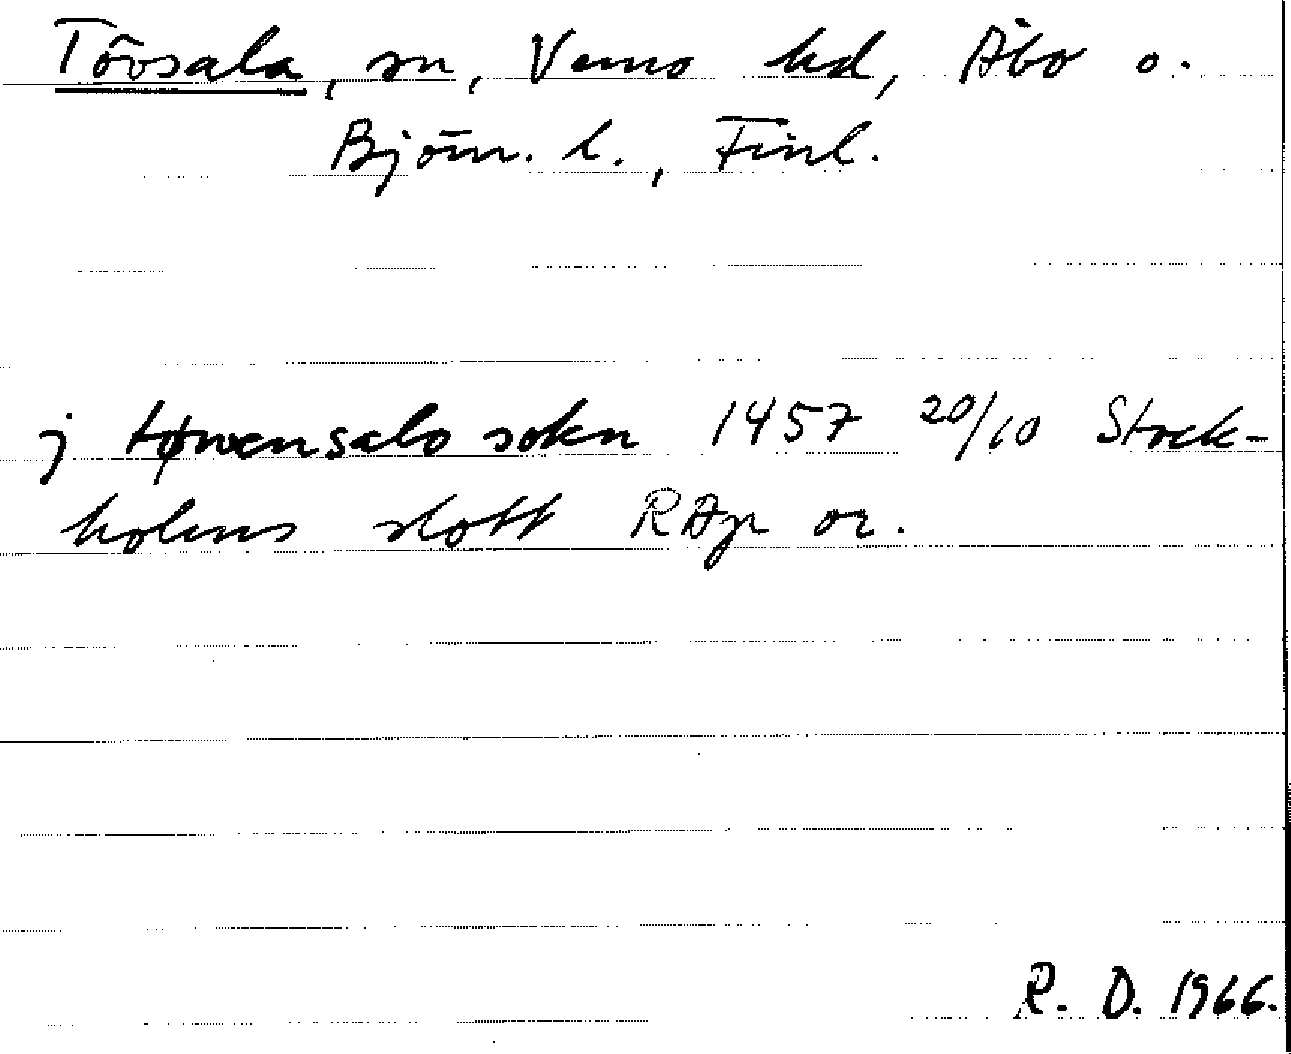 Tövsala, sn, Vemo hd, Åbo o.
Björn. l., Finl.
j tøwensalo sokn 1457 20/10 Stock-
holms slott RAp or.
R. D. 1966.